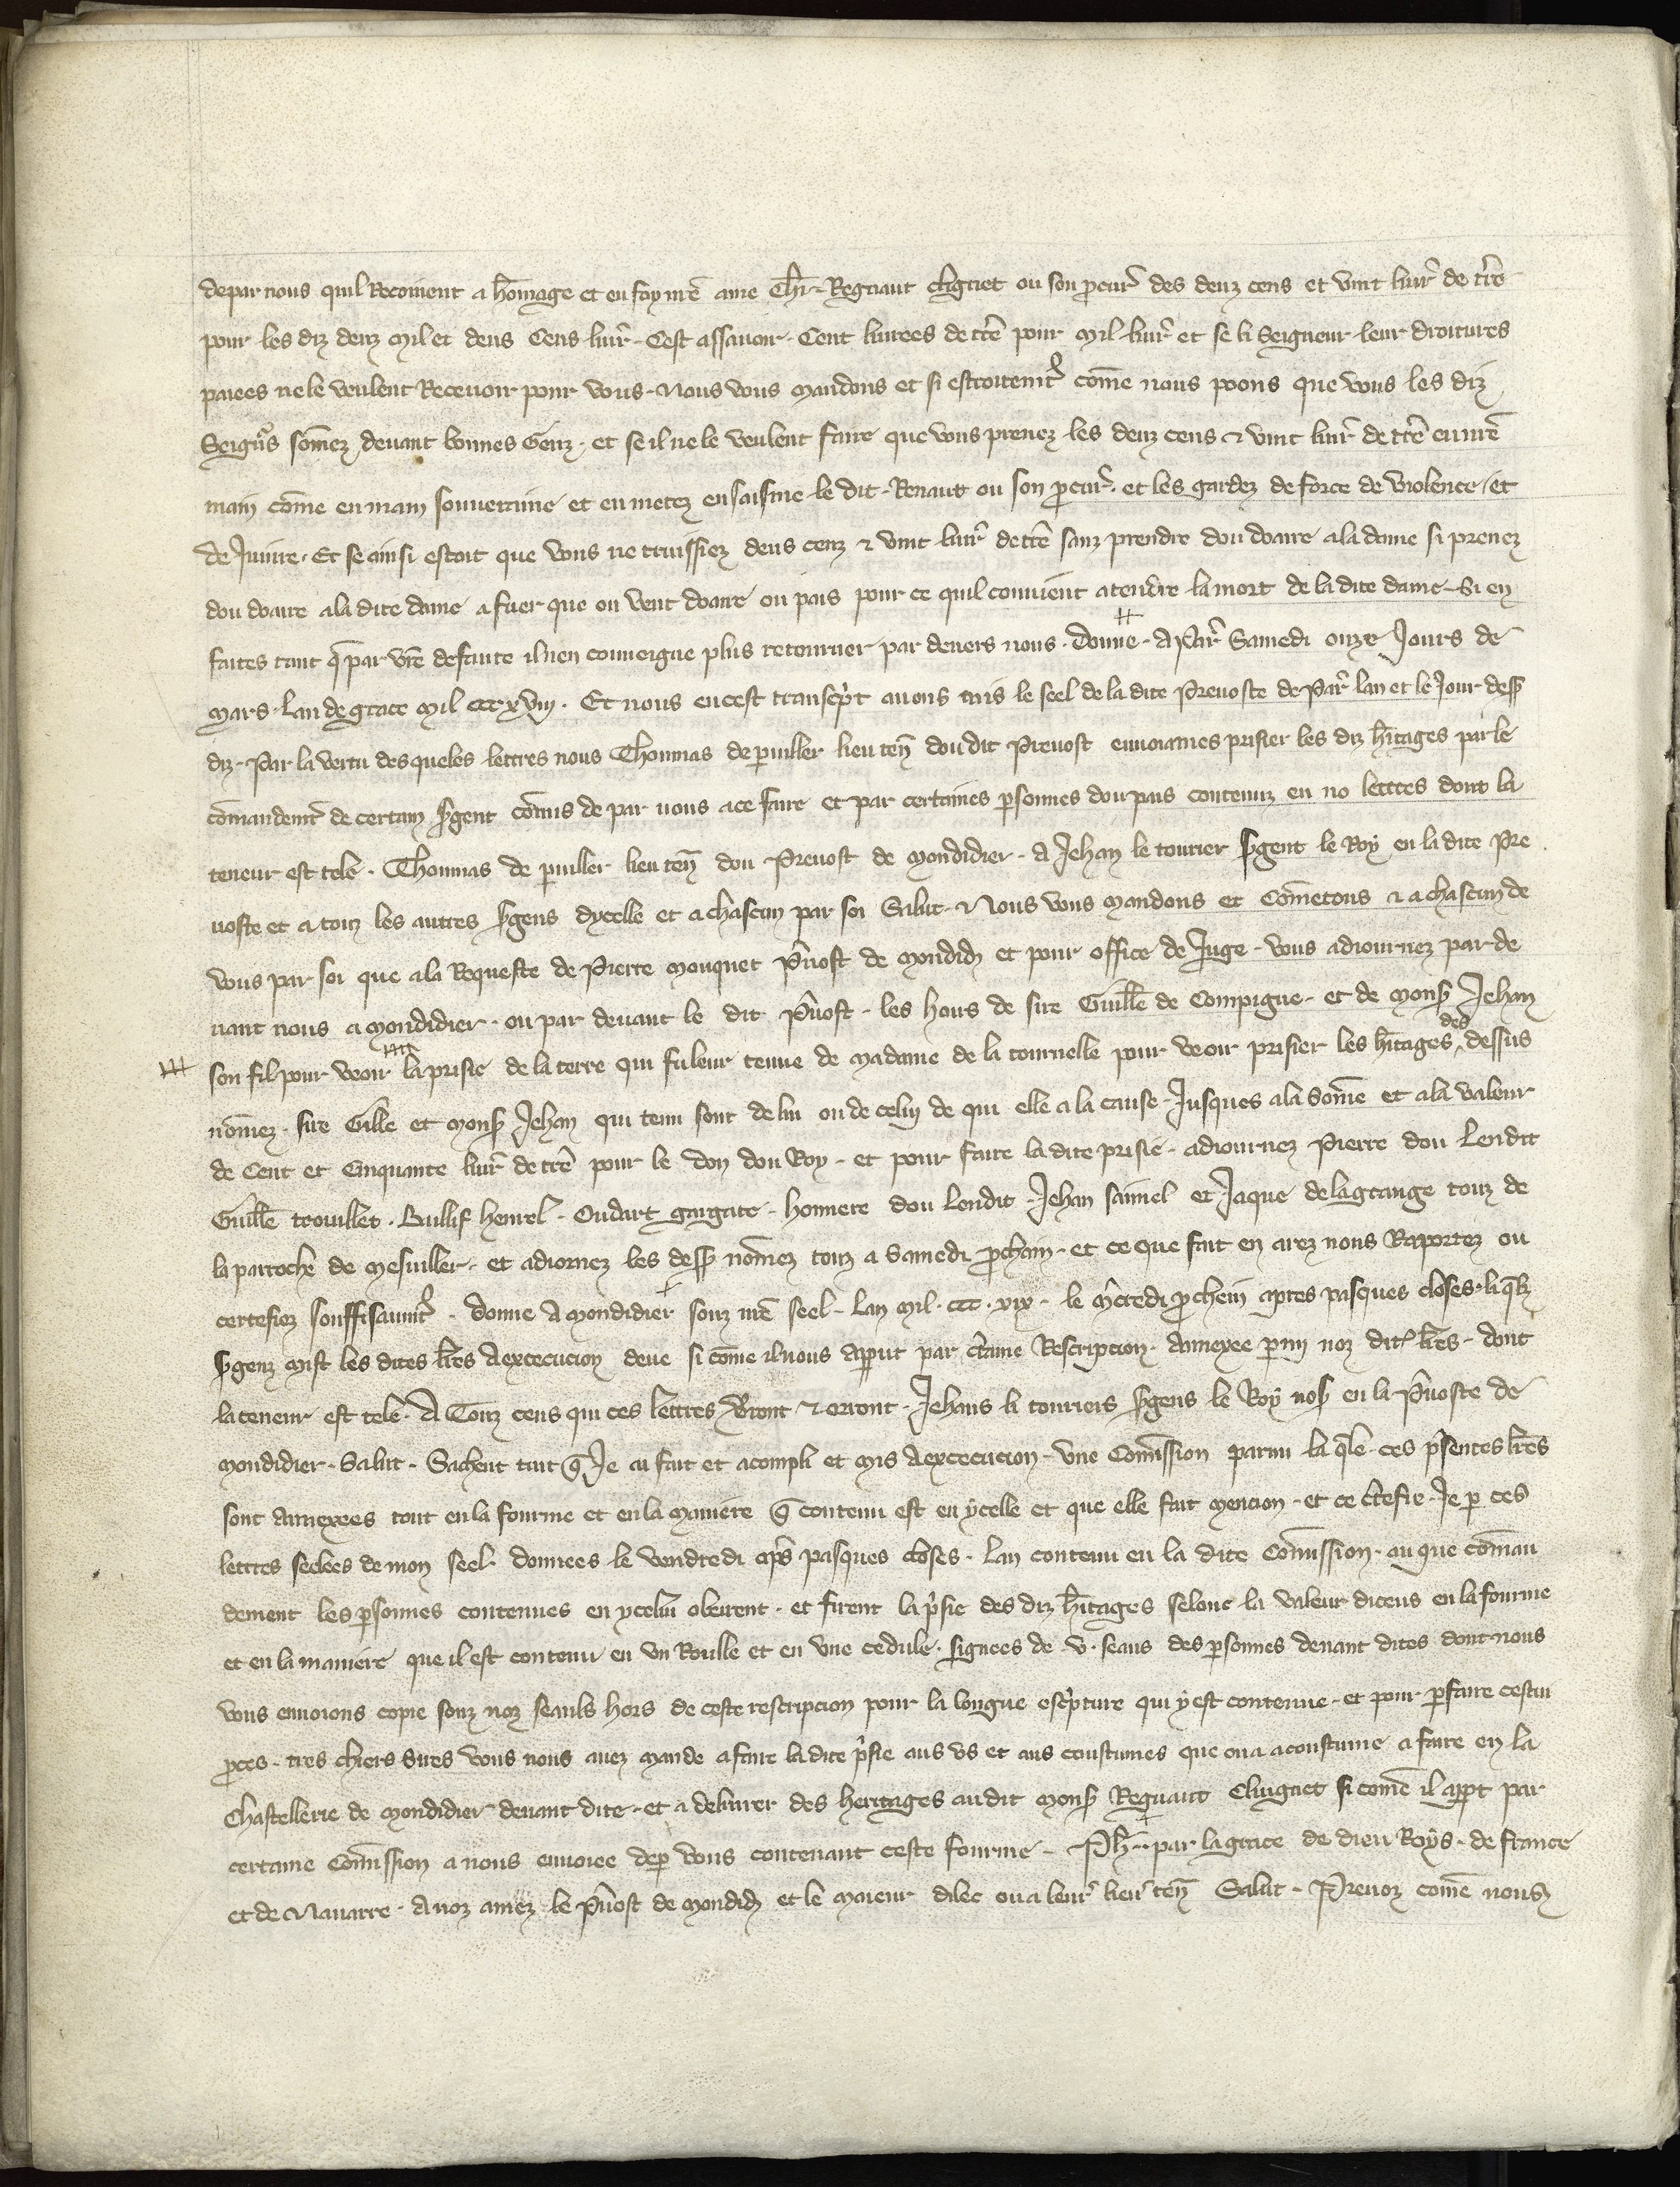 depar nous quil Recoiuent a hōmage et en foy nr̄e ame Chr̄ Regnaut clignet ou son ꝓcur̄ des deuz cens et vint liur̄ de tr̄e
pour les diz deuz mil et deus Cens liur̄ . Cest assauoir . Cent liurees de tr̄e pour mil liur̄ et se li Seigneur leur droitures
paiees ne le veulent Receuoir pour vous . Nous vous mandons et si estroitemt̄ cōme nous poons que vous les diz
Seign̄rs sōmez deuant bonnes Genz . et se il ne le veulent faire que vous prenez les deuz cens ⁊ vint liur̄ de tr̄e en nr̄e
main cōme en main souueraine et en metez en saisine le dit . Renaut ou son ꝓcur̄ . et les gardez de force de violence et
de Iniure . Et se ainsi estoit que vous ne truissiez deus cenz ⁊ vint liur̄ de tr̄e sanz prendre dou doaire a la dame si prenez
dou doaire a la dite dame a fuer que on vent doaire ou pais pour ce quil conuient atendre la mort de la dite dame . Si en
faites tant q̄ par vr̄e defaute il nen conueigne plus retourner par deuers nous . Donne . A Par̄ Samedi onze Iours de
Mars . Lan de grace Mil ccc xviij . Et nous en cest transcp̄t auons mis le seel de la dite Preuoste de Par̄ lan et le Iour dess̄
diz . Par la vertu desqueles lettres nous Thoumas de puiller lieu ten̄ dou dit Preuost enuoiames prisier les diz hītages par le
cōmandemt̄ de certain Sgent cōmis de par nous a ce faire et par certaines ꝑsonnes dou pais contenuz en no lettres dont la
teneur est tele . Thoumas de puiller lieu ten̄ dou Preuost de Mondidier . A Iehan le tourier Sgent le Roy en la dite Pre
uoste et a touz les autres Sgens dycelle et a chascun par soi Salut . ⁊ Nous vous mandons et Cōmetons ⁊ a chascun de
vous par soi que a la Requeste de Pierre mouquet P̄uost de mondid̄ et pour office de Iuge . vous adiournez par de
uant nous a mondidier . ou par deuant le dit P̄uost . les hoirs de sire Guill̄e de Compigne . et de mons̄ Iehan
son fil pour veoir la prisie de la terre qui fu leur tenue de madame de la tournelle pour veoir prisier les hītages des dessus
nōmez . sire Gille et mons̄ Iehan qui tenu sont de lui ou de celui de qui elle a la cause . Iusques a la Sōme et a la valeur
de Cent et Cinquante liur̄ de tr̄e pour le don dou Roy . et pour faire la dite prisie . adiournez Pierre dou Lendit
Guill̄e trouillet . Bullif henrel . Oudart gargate . Honnere dou Lendit . Iehan samel et Iaque de lagrange touz de
la parroche de mesuiller . et adiornez les dess̄ nōmez touz a Samedi ꝓchain . et ce que fait en arez nous Raportez ou
certefiez souffisaumt̄ . Donne A Mondidier souz nr̄e seel . Lan Mil . ccc . xix . le m̄credi ꝓchein apres pasques closes . li q̄lz
Sgenz mist les dites lr̄es A execucion deue si cōme il nous apput par c̄taine Rescripcion . annexee ꝑmi noz dit̄ lr̄es . dont
la teneur est tele . A Touz ceus qui ces lettres v̄ront ⁊ orront . Iehans li touriers Sgens le Roy nos̄ en la P̄uoste de
Mondidier . Salut . Sachent tuit q̄ Ie ai fait et acompli et mis A execucion . vne Comission parmi la q̄le . ces p̄sentes lr̄es
sont annexees tout en la fourme et en la maniere q̄ contenu est en ycelle et que elle fait mencion . et ce c̄tefie . Ie ꝑ ces
lettres seelees de mon seel . donnees le vendredi ap̄s pasques closes . Lan contenu en la dite Comission . au que cōman
dement les ꝑsonnes contenues en ycelui obeirent . et firent la p̄sie des diz hītages selonc la valeur diceus en la fourme
et en la maniere que il est contenu en vn Roulle et en vne cedule . signees de v . seaus des ꝑsonnes deuant dites dont nous
vous enuoions copie souz noz seauls hors de ceste rescripcion pour la longue escp̄ture qui y est contenue . et pour ꝑfaire cestui
ꝓces . tres chiers sires vous nous auez mande a faire la dite p̄sie aus vs et aus coustumes que on a acoustume a faire en la
Chastellerie de Mondidier deuant dite . et a deliurer des heritages au dit mons̄ Regnaut Clingnet si cōme il appt par
certaine Comission a nous enuoiee deꝑ vous contenant ceste fourme . Ph̄ . par la grace de dieu Roys . de france
et de Nauarre . A noz amez le P̄uost de mondid̄ et le maieur dilec ou a leur̄ lieu ten̄ Salut . Preuoz cōme nous